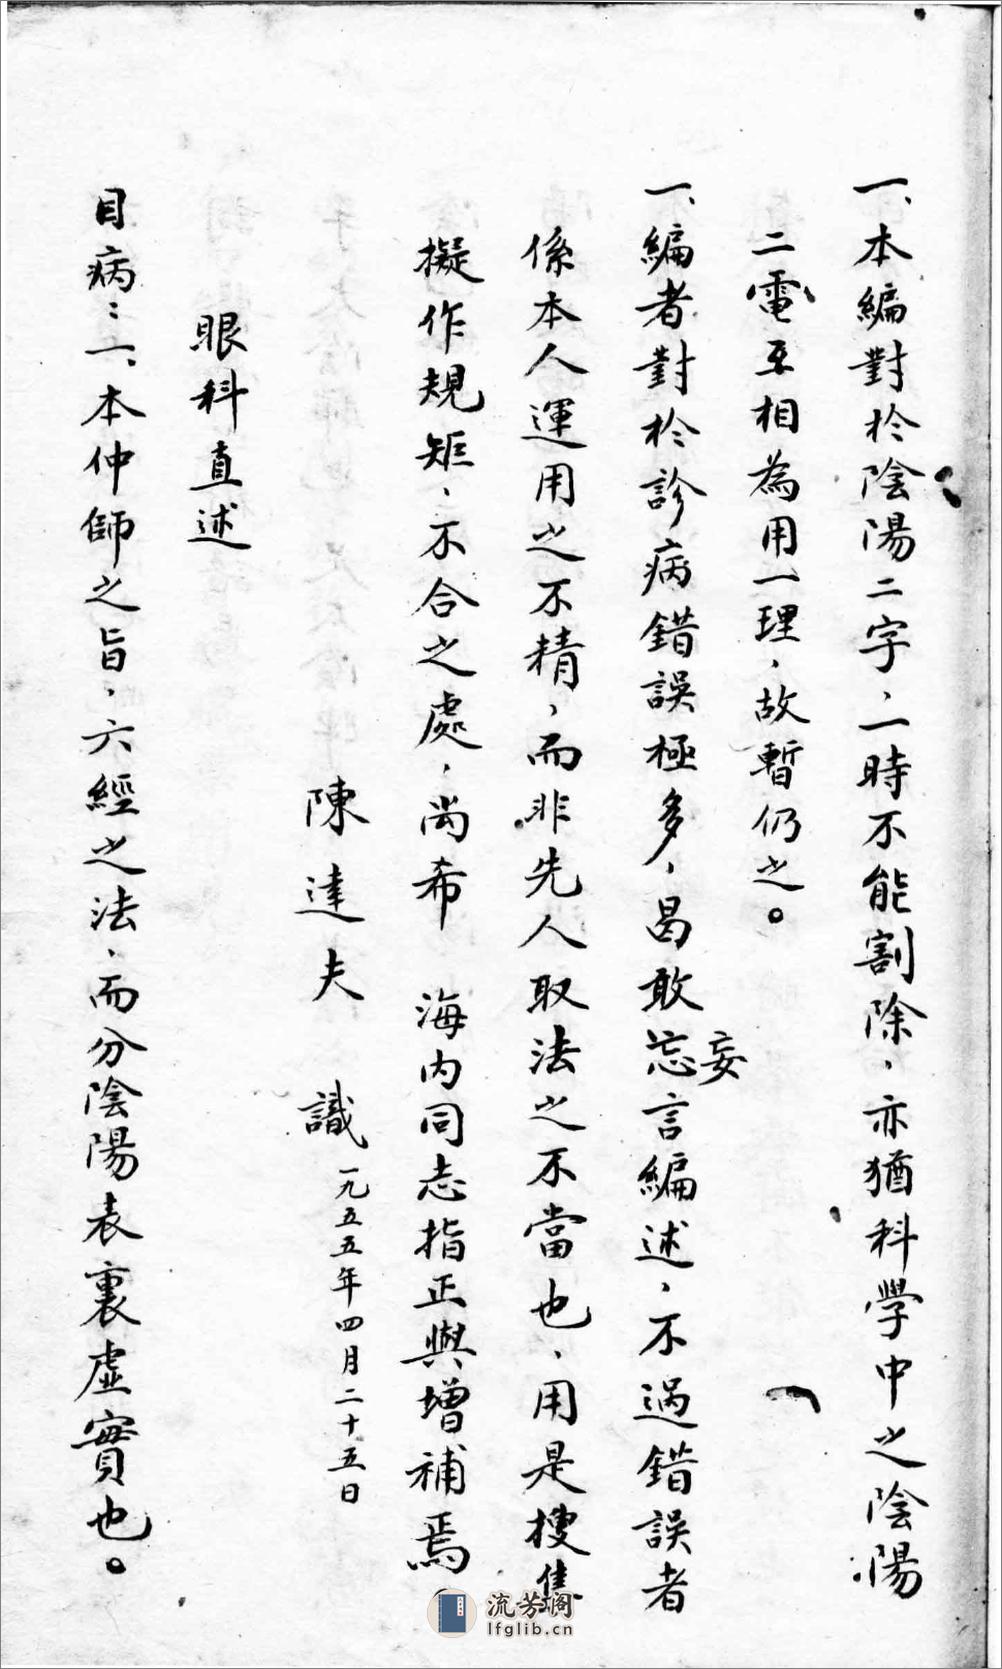 一、本編對於陰陽二字，一時不能割除，亦猶科學中之陰陽
二電互相為用一理，故暫仍之。
一、編者對於診病錯誤極多，曷敢忘妄言編述，不過錯誤者
係本人運用之不精，而非先人取法之不當也，用是搜集
擬作規矩，不合之處，尚希 海内同志指正與增補焉
陳達夫 識 一九五五年四月二十五日
眼科直述
目病：一、本仲師之旨，六經之法，而分陰陽表裏虛實也。
流芳阁
lfglib.cn